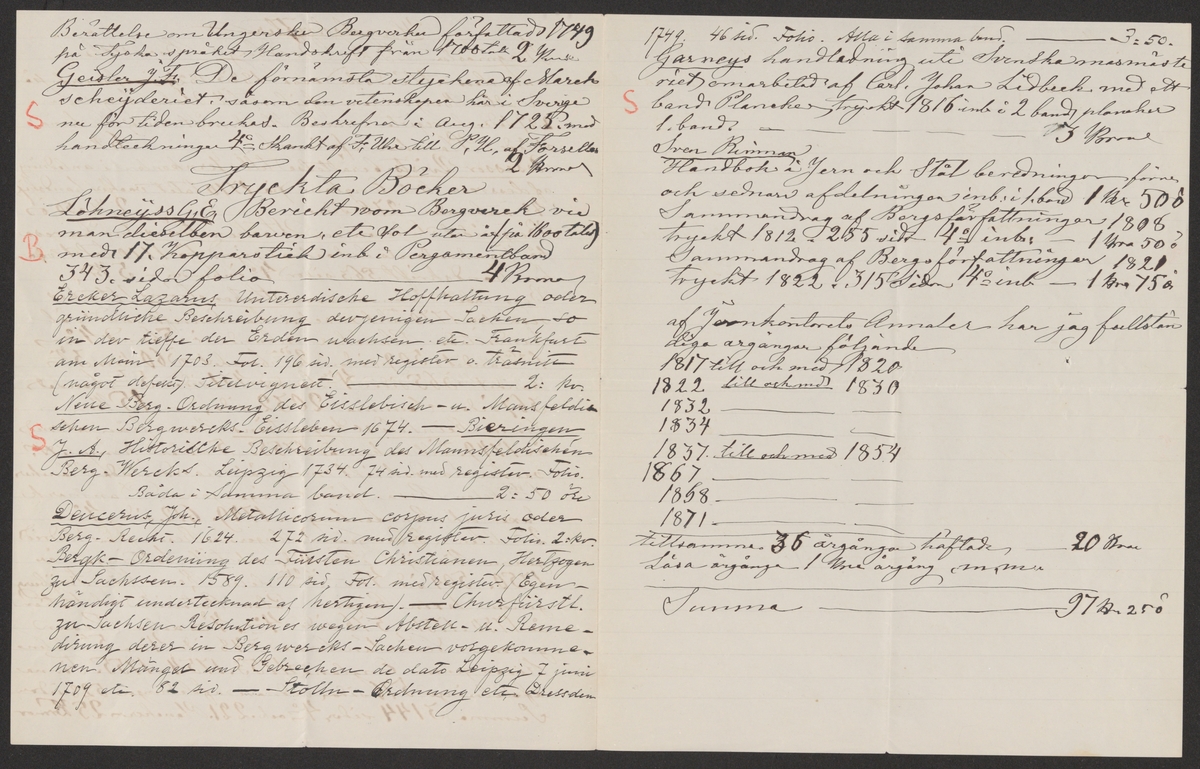 Berättelse om Ungerska Bergverken författad 1749
på tyska språket, Handskrift från 1700talet 2 Kronor
Geisler J. T. De förnämsta styckena af Marck
scheijderiet, såsom den vetenskapen här i Sverige
S
nu för tiden brukas. Beskrefne i Aug. 1725. med
handteckningar 4o Skänkt af F. Wer till P. U. af Forselles
2 Kronor
Tryckta Böcker
Löhneyss G. E. Bericht vom Bergwerck wie
man dieselben bawen, etc Vol utan år på 1600talet)
B
med 17. Kopparstick inb i Pergamentband
343. sidor folio 4 Kronor
Ercker Lazarus Unterirdische Hoffhaltung oder
gründliche Beschreibung derjenigen Sachen so
in der tieffe der Erden wachsen. etc. Frankfurt
am Main 1703. Fol. 196 sid. med register o. träsnitt
(något defekt) titelvignett 2: kr.
Neue Berg-Ordnung des Eisslebisch- u. Mansfeldi-
schen Bergwercks. Eissleben 1674. — Bieringen
S
J. A., Historische Beschreibung des Mannsfeldischen
Berg-Wercks. Leipzig 1734. 74 sid. med register. Folio.
Båda i samma band. 2: 50 öre
Deucerus, Joh., Metallicorum corpus juris oder
Berg-Recht. 1624. 272 sid. med register. Folio. 2: kr.
Bergk-Ordenung des Fürsten Christianen, Hertzogen
zu Sachssen. 1589. 110 sid. Fol. med register, Egen-
händigt undertecknad af hertigen). — Churfürstl.
zu Sachsen Resolutiones wegen Abstell- u. Reme-
dirung derer in Bergwercks-Sachen vorgekomme-
nen Mängel und Gebrechen de dato Leipzig 7 juni
1709 etc. 82 sid. — Stolln-Ordnung etc. Dressden
1749. 46 sid. Folio. Alla i samma band. 3: 50.
Garneys handledning uti Svenska masmäste
riet omarbetad af Carl Johan Lidbeck med ett
S
band Plancher, Tryckt 1816 inb i 2 band, plancher
1. band. 3 Kronor
Sven Rinman
Handbok i Jern och Stål beredningen förra
och sednare afdelningen inb: i 1. band 1 Kr 50 ö
Sammandrag af Bergsförfattningar 1808
tryckt 1812. 255 sid 4o inb: — 1 Krona 50 ö
Sammandrag af Bergsförfattningar 1821
tryckt 1822. 315 Sidor 4o inb — 1 Kr 75 ö
af Jernkontorets Annaler har jag fullstän
diga årgångar följande
1817 till och med 1820
1822 till och med 1830
1832
1834
1837. till och med 1854
1867
1868
1871
tillsammans 36 årgångar häftade, 20 Kronor
Lösa årgångar 1 Krona årgång
Summa 97 Kr. 25 ö